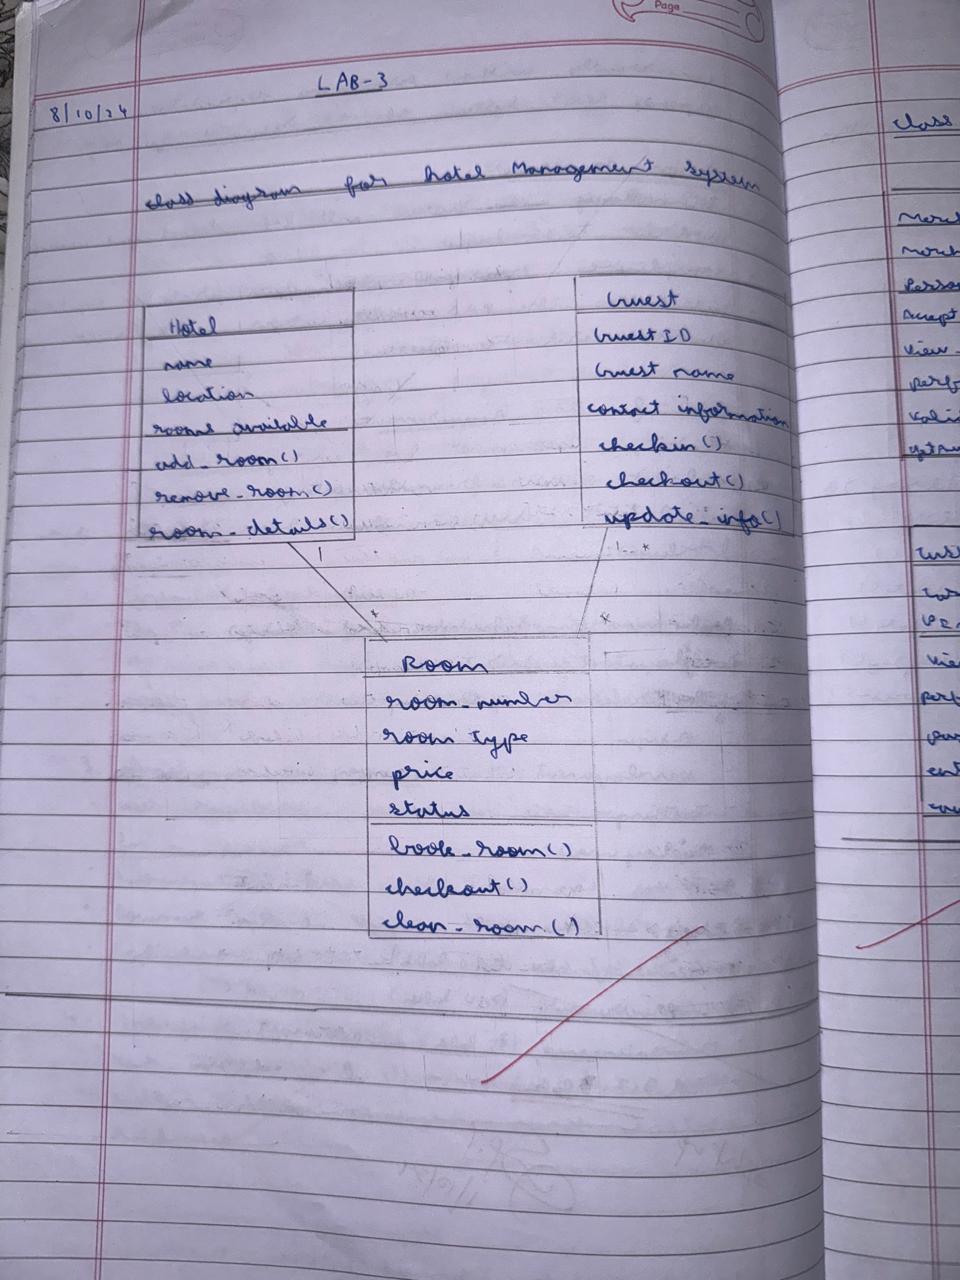 Page
LAB-3
8/10/24
class diagram for hotel Management system
Hotel
name
location
rooms available
add_room()
remove_room()
room_details()
1
*
Guest
Guest ID
Guest name
contact information
checkin()
checkout()
update_info()
1..*
*
Room
room_number
room type
price
status
book_room()
checkout()
clean_room()
class